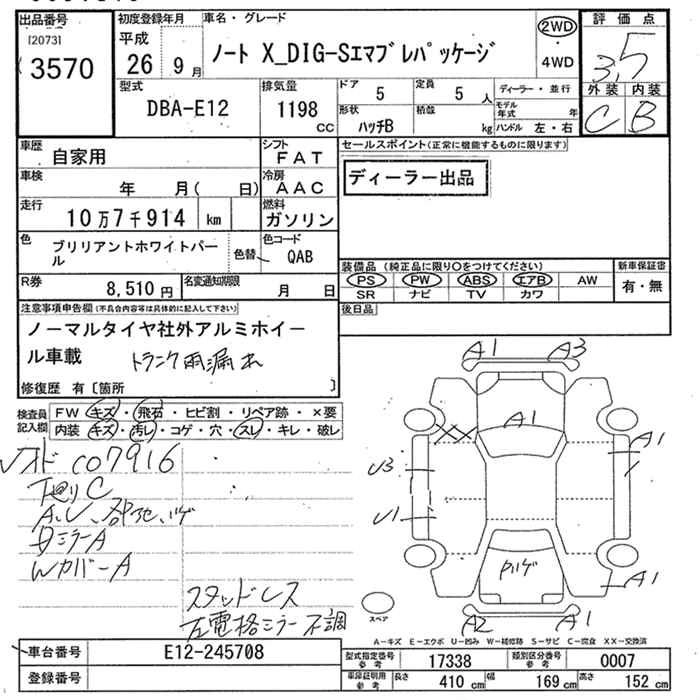 出品番号 初度登録年月 車名・グレード 評価点
[2073] 平成 ノート X_DIG-Sエマブレパッケージ 2WD 3.5
3570 26 9月 4WD 外装 内装
型式 排気量 ドア 5 定員 5人 ディーラー・並行 C B
DBA-E12 1198 cc 形状 ハッチB 積載 kg モデル年式 年 ハンドル 左・右
車歴 自家用 シフト FAT セールスポイント(正常に機能するものに限ります)
車検 年 月( 日) 冷房 AAC ディーラー出品
走行 10万7千914 km 燃料 ガソリン
色 ブリリアントホワイトパール 色替 色コード QAB
装備品(純正品に限り○をつけてください) 新車保証書
R券 8,510円 名変通知期限 月 日 PS PW ABS エアB AW 有・無
SR ナビ TV カワ
注意事項申告欄(不具合内容等は具体的に記入して下さい) 後日品
ノーマルタイヤ社外アルミホイー
ル車載 トランク雨漏れ
修復歴 有〔箇所 〕
検査員 FW キズ・飛石・ヒビ割・リペア跡・×要
記入欄 内装 キズ・汚レ・コゲ・穴・スレ・キレ・破レ
A1 A3
A1
XX A1
U3
U1
ハゲ A1
A2 A1
スペア
107916
下廻りC
A、U、
ミラーA
WカバーA
スタッドレス
左電格ミラー不調
A-キズ E-エクボ U-凹み W-補修跡 S-サビ C-腐食 XX-交換済
車台番号 E12-245708 型式指定番号 参考 17338 類別区分番号 参考 0007
登録番号 車庫証明用 参考 長さ 410cm 幅 169cm 高さ 152cm